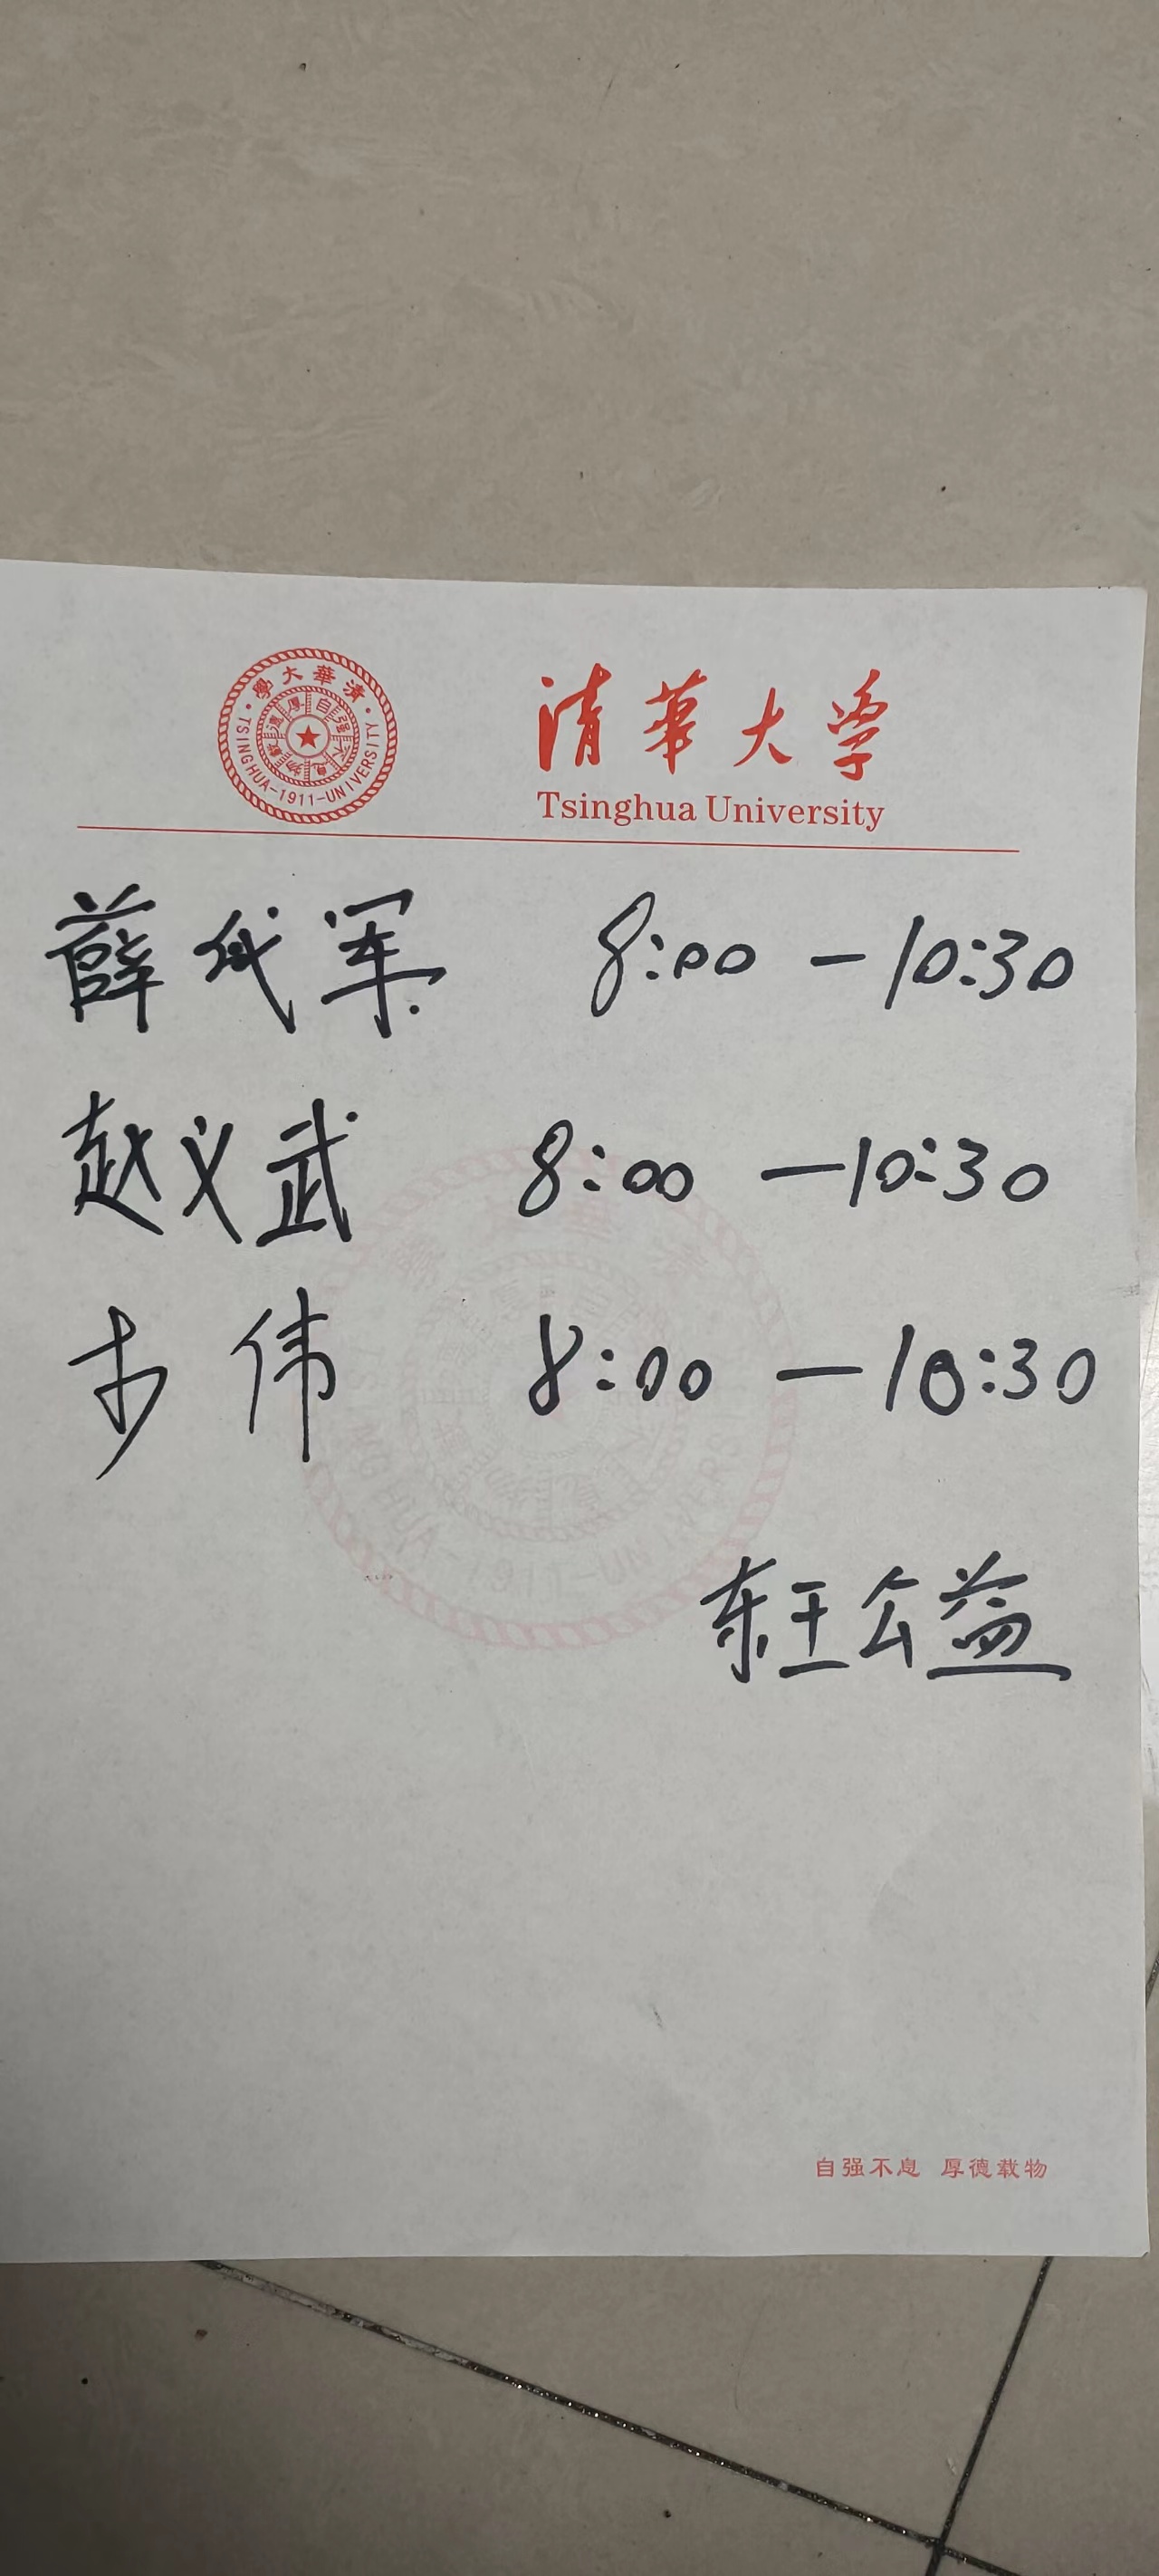 清華大學
TSINGHUA-1911-UNIVERSITY
自强不息
厚德載物
清華大学
Tsinghua University
薛成军 8:00 - 10:30
赵义武 8:00 - 10:30
步 伟 8:00 - 10:30
东王公益
自强不息 厚德载物